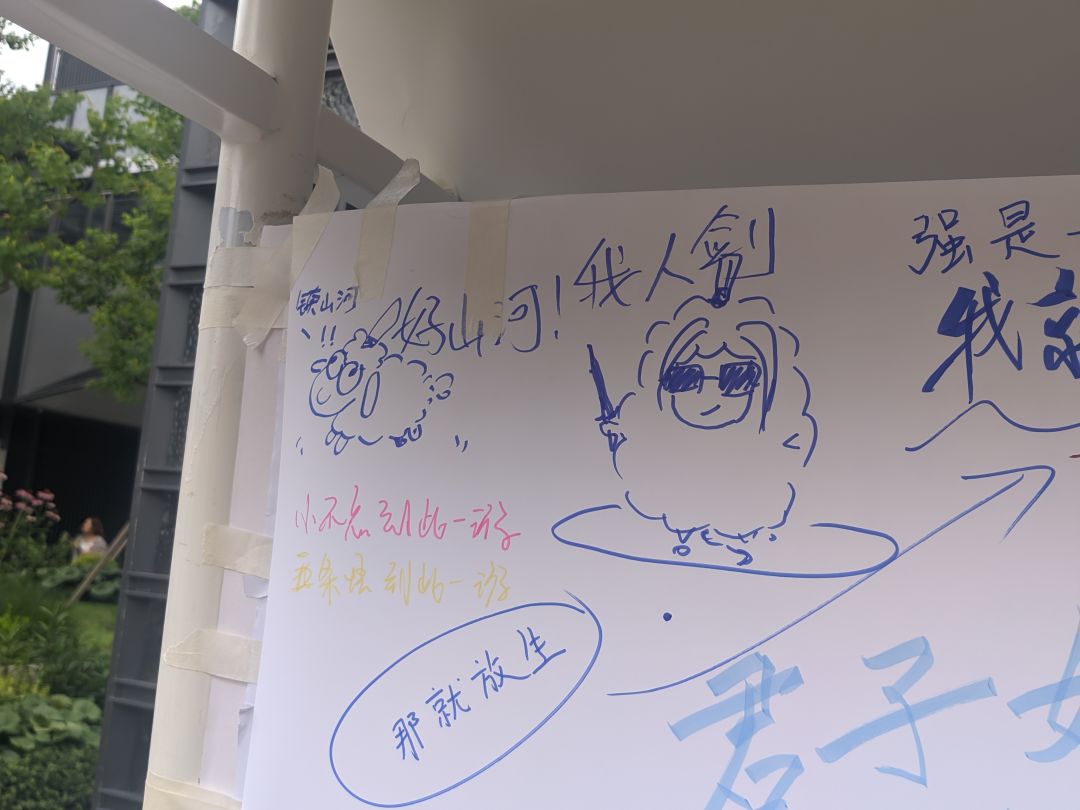 镇山河
好山河!
我人剑
强是
我
小不忘到此一游
到此一游
那就放生
君子